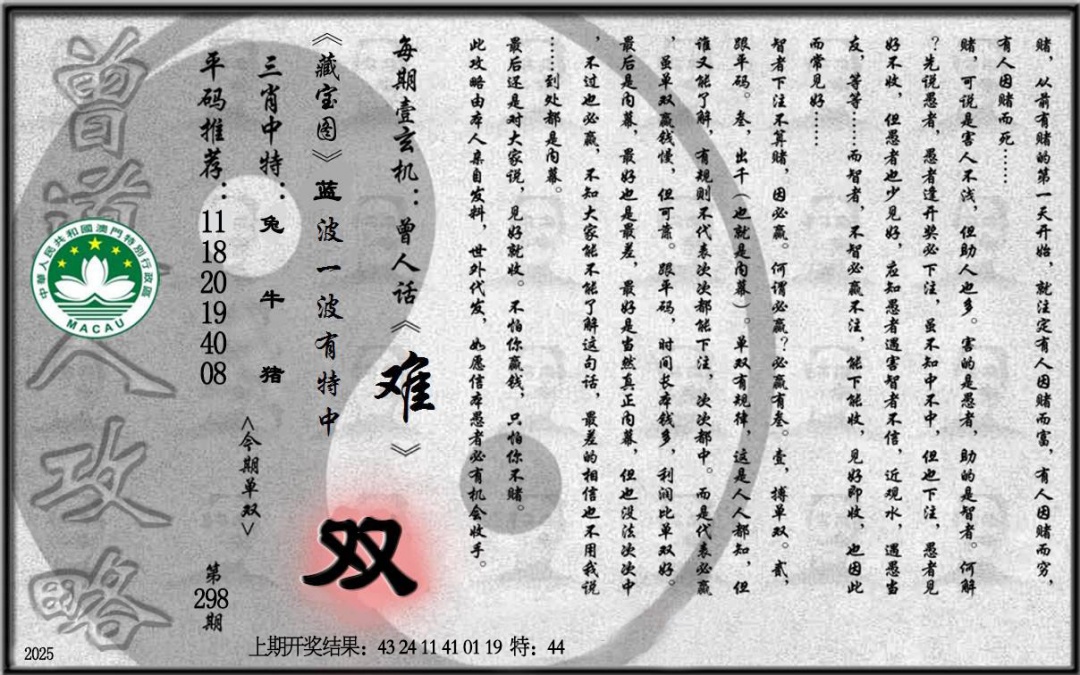 赌，从前有赌的第一天开始，就注定有人因赌而富，有人因赌而穷，
有人因赌而死……
赌，可说是害人不浅，但助人也多。害的是愚者，助的是智者。何解
？先说愚者，愚者逢开奖必下注，虽不知中不中，但也下注，愚者见
好不收，但愚者也少见好，应知愚者遇害智者不信，近观水，遇愚当
友，等等……而智者，不智必赢不注，能下能收，见好即收，也因此
而常见好……
智者下注不算赌，因必赢。何谓必赢？必赢有叁。壹，搏单双。贰，
跟平码。叁，出千（也就是内幕）。单双有规律，这是人人都知，但
谁又能了解，有规则不代表次次都能下注，次次都中。而是代表必赢
，虽单双赢钱慢，但可靠。跟平码，时间长本钱多，利润比单双好。
最后是内幕，最好也是最差，最好是当然真正内幕，但也没法次次中
，不过也必赢，不知大家能不能了解这句话，最差的相信也不用我说
……到处都是内幕。
最后还是对大家说，见好就收。不怕你赢钱，只怕你不赌。
此攻略由本人亲自发料，世外代发，如愿信本愚者必有机会收手。
每期壹玄机：曾人话《难》
《藏宝图》蓝波一波有特中
双
三肖中特：兔 牛 猪
<今期单双>
平码推荐：11 18 20 19 40 08
第298期
曾道人攻略
中華人民共和國澳門特別行政區
MACAU
上期开奖结果：43 24 11 41 01 19 特：44
2025